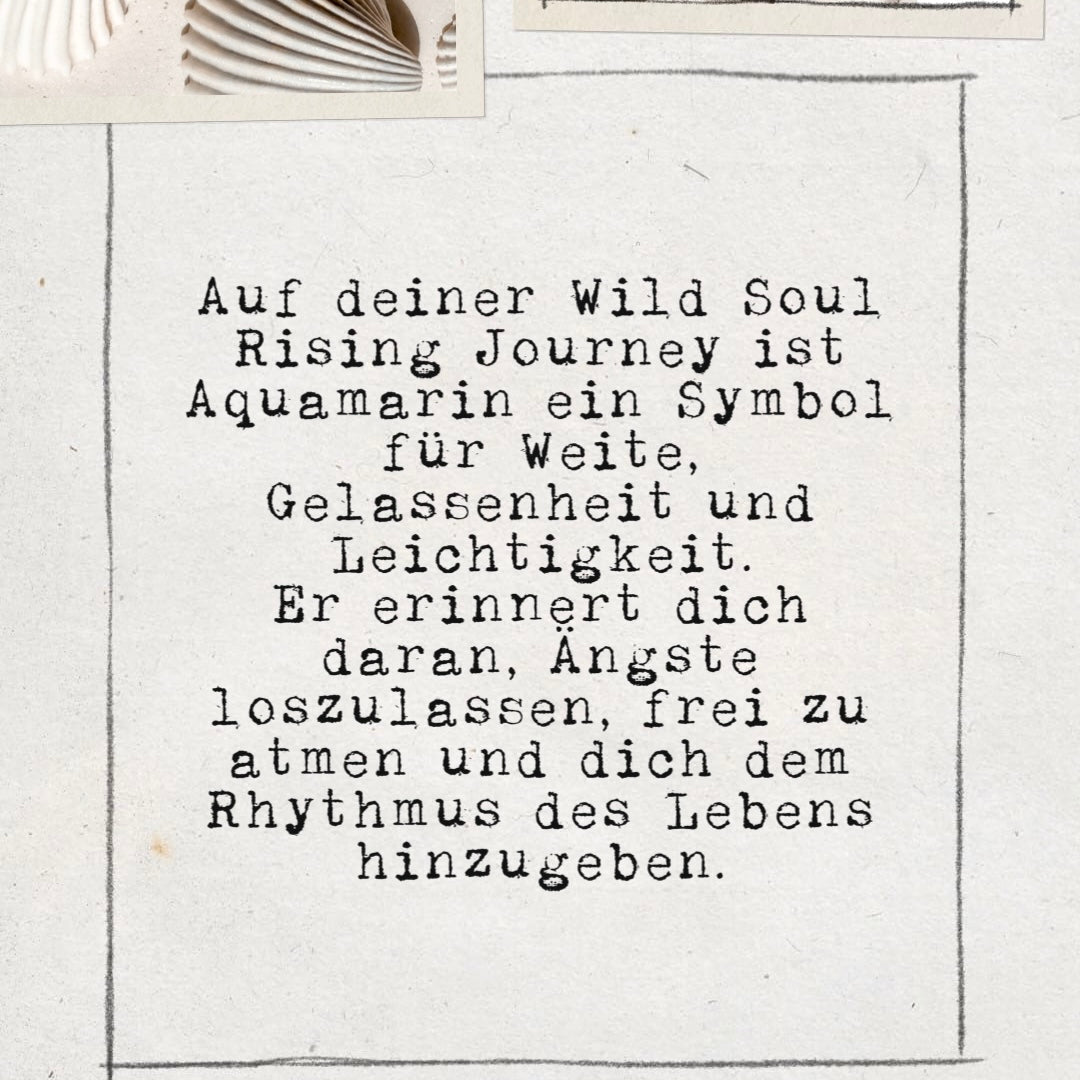 Auf deiner Wild Soul
Rising Journey ist
Aquamarin ein Symbol
für Weite,
Gelassenheit und
Leichtigkeit.
Er erinnert dich
daran, Ängste
loszulassen, frei zu
atmen und dich dem
Rhythmus des Lebens
hinzugeben.